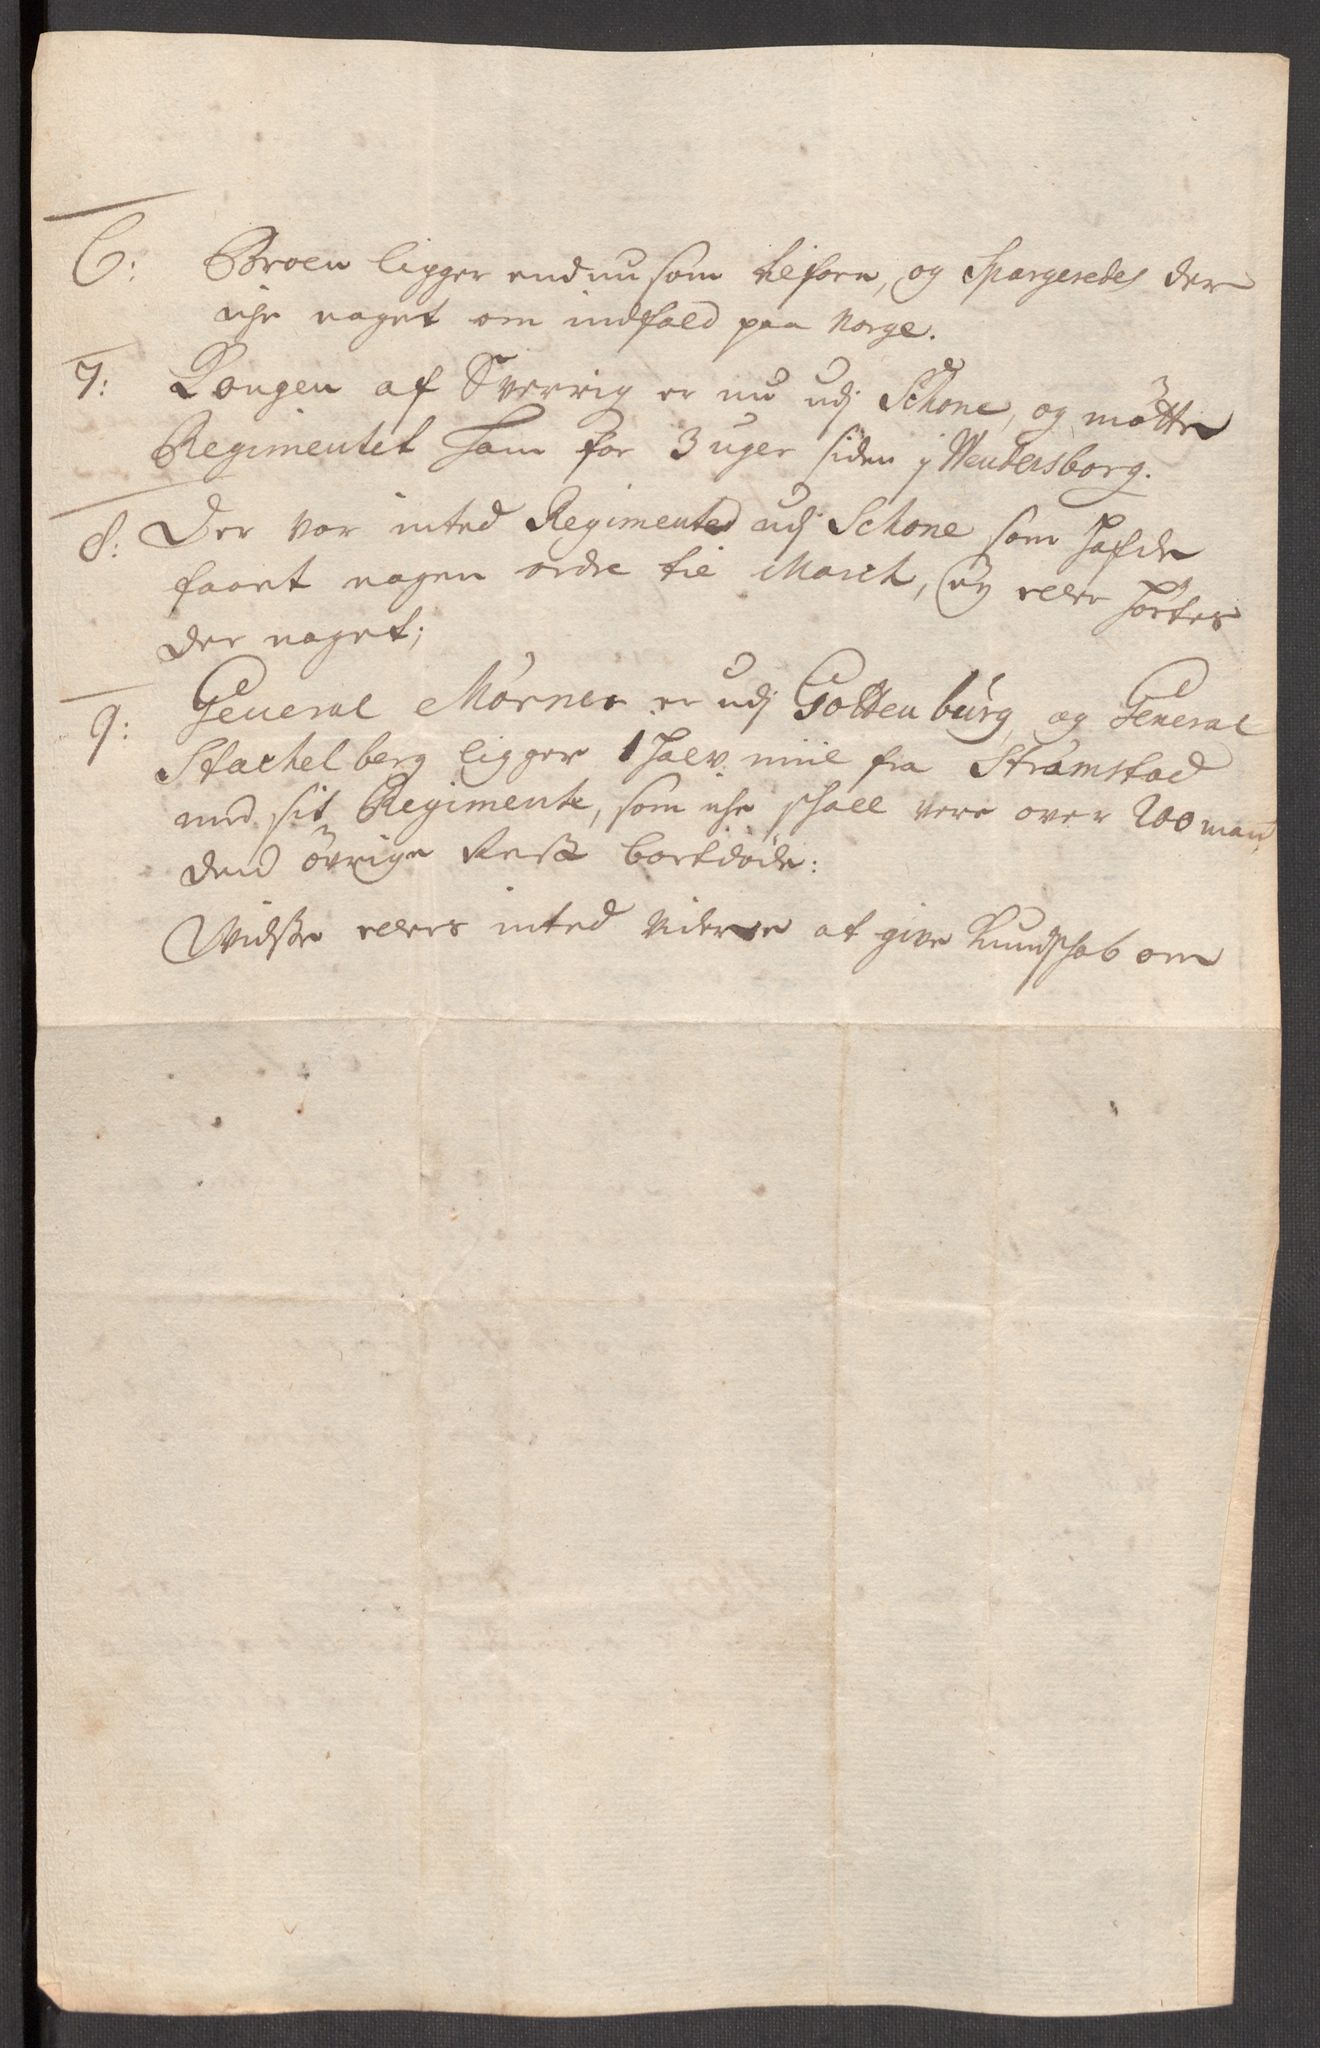 6: Broen ligger endnu som tilforn, og Spargeredes der
iche noget om indfald paa Norge.
7: Kongen af Sverrig er nu udj Schone, og mötte
Regimentet ham for 3 uger siden j Wendersborg.
8: Der var inted Regimented udj Schone som hafde
faaet nogen ordre til March, ey eller hörtes
der noget;
9: General Mörner er udj Gottenburg, og General
Stachelberg ligger 1 halv miil fra Strömstad
med sit Regimente, som iche schall vere over 200 man,
dend övrige Rest bortdöde:
Widste ellers inted videre at give Kundschab om